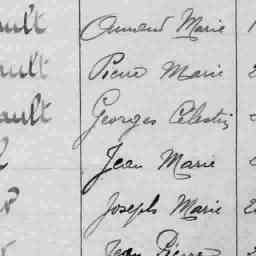 ault Armand Marie
ault Pierre Marie
ault Georges Célestin
Jean Marie
Joseph Marie
Jean Pierre